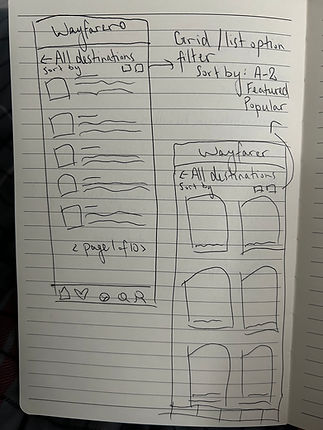 Wayfarer
← All destinations
Sort by
< page 1 of 10 >
Grid / list option
filter
Sort by: A-Z
Featured
Popular
Wayfarer
← All destinations
Sort by